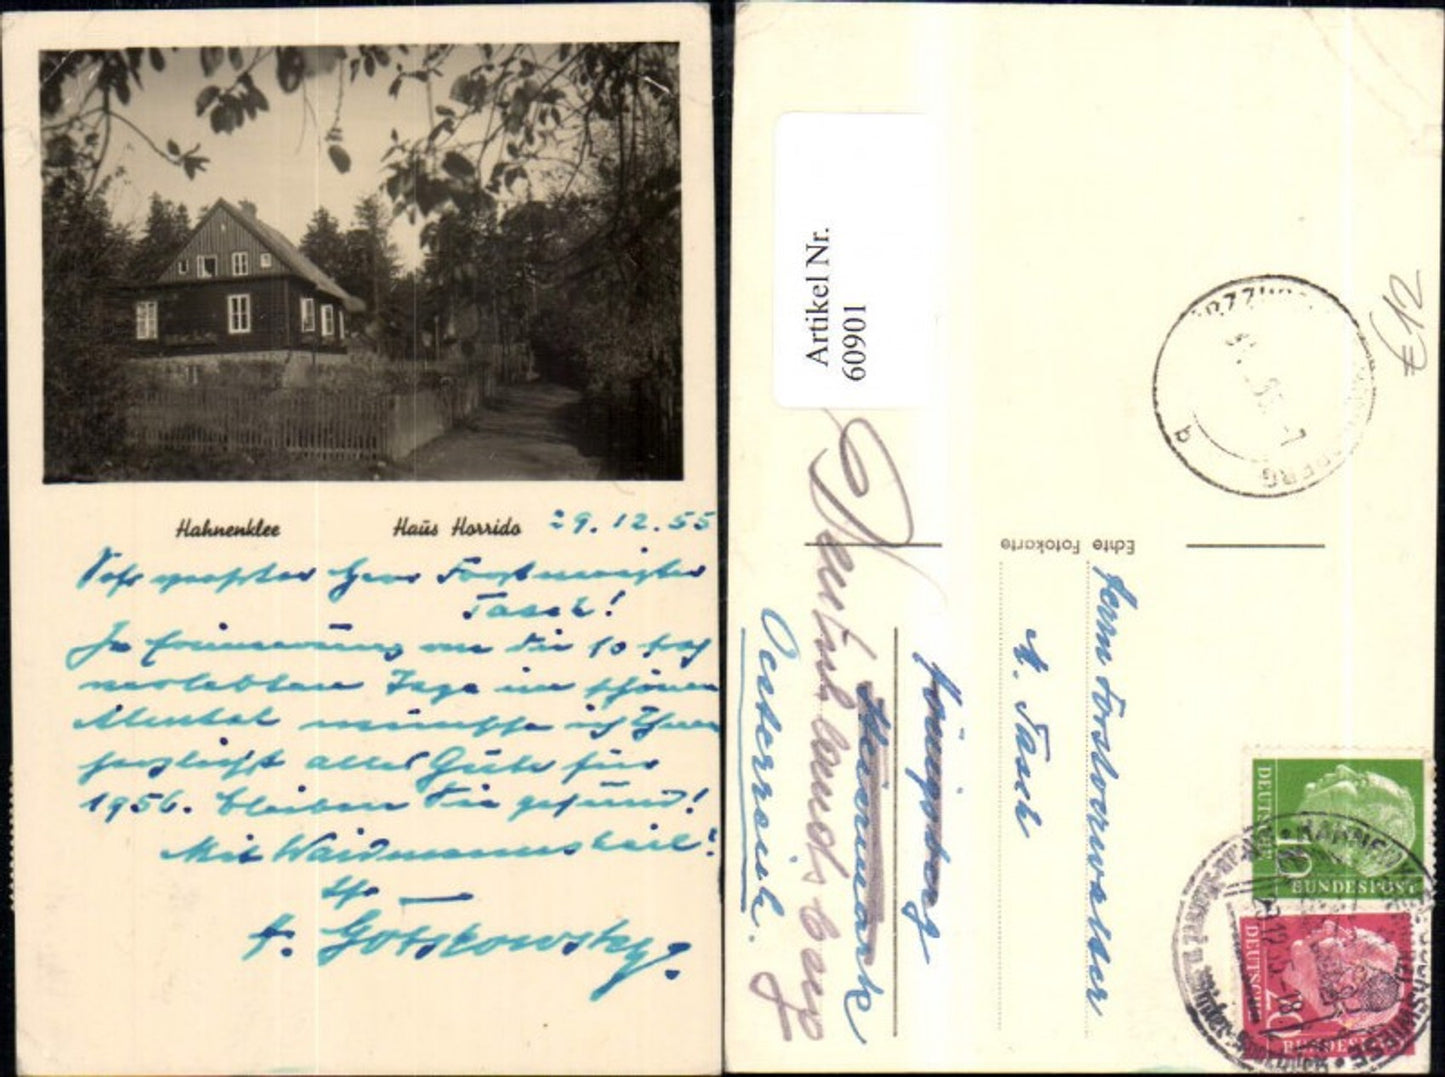 Hahnenklee Haus Horrido 29.12.55
Sehr geehrter Herr Forstverwalter
Tasch!
In Erinnerung an die 10 tag
verlebten Tage im schönen
wünsche ich Ihnen
herzlichst alles Gute für
1956. bleiben Sie gesund!
Mit Waidmannsheil!
Ihr
F. Götskowsky.
Artikel Nr.
60901
€ 12
Echte Fotokarte
Herrn Forstverwalter
A. Tasch
Steiermark
Oesterreich.
10
DEUTSCHE
BUNDESPOST
20
DEUTSCHE
BUNDESPOST